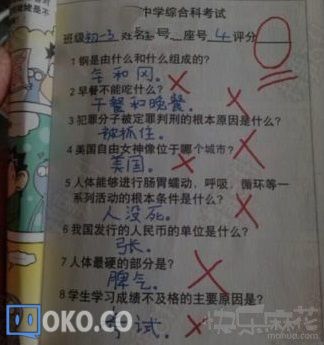 中学综合科考试
班级初一3 姓名 号 座号 4 评分
1 钢是由什么和什么组成的?
金和冈。
2 早餐不能吃什么?
午餐和晚餐。
3 犯罪分子被定罪判刑的根本原因是什么?
被抓住。
4 美国自由女神像位于哪个城市?
美国。
5 人体能够进行肠胃蠕动,呼吸,循环等一
系列活动的根本条件是什么?
人没死。
6 我国发行的人民币的单位是什么?
张。
7 人体最硬的部分是?
脾气。
8 学生学习成绩不及格的主要原因是?
考试。
OKO.CO
快乐麻花
mahua.com